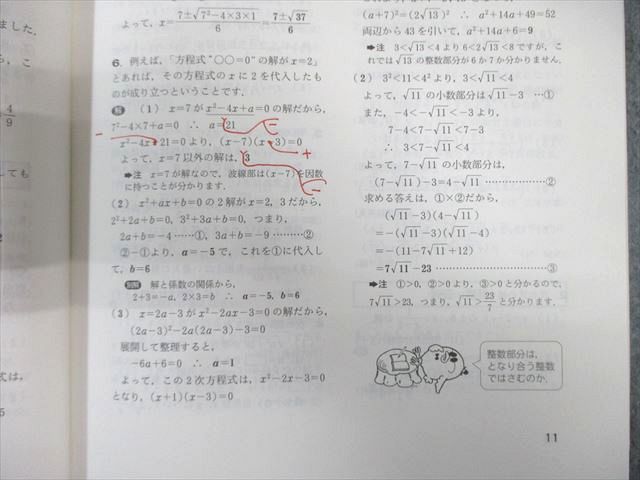 ました.
こ
4
9
ても
式は,
5
よって, x=7±√7²−4×3×1/6=7±√37/6
6. 例えば,「方程式“○○=0”の解が x=2」
とあれば, その方程式の x に 2 を代入したも
のが成り立つということです.
解 (1) x=7 が x²−4x+a=0 の解だから,
7²−4×7+a=0 ∴ a=21
−
−
x²−4x+21=0 より, (x−7)(x+3)=0
+
よって, x=7 以外の解は, 3
−
➡注 x=7 が解なので, 波線部は (x−7) を因数
に持つことが分かります.
(2) x²+ax+b=0 の 2 解が x=2, 3 だから,
2²+2a+b=0, 3²+3a+b=0, つまり,
2a+b=−4 ……①, 3a+b=−9 ………②
②−①より, a=−5 で, これを①に代入し
て, b=6
別解 解と係数の関係から,
2+3=−a, 2×3=b ∴ a=−5, b=6
(3) x=2a−3 が x²−2ax−3=0 の解だから,
(2a−3)²−2a(2a−3)−3=0
展開して整理すると,
−6a+6=0 ∴ a=1
よって, この 2 次方程式は, x²−2x−3=0
となり, (x+1)(x−3)=0
(a+7)²=(2√13)² ∴ a²+14a+49=52
両辺から 43 を引いて, a²+14a+6=9
➡注 3<√13<4 より 6<2√13<8 ですが, こ
れでは √13 の整数部分が 6 か 7 か分かりません.
(2) 3²<11<4² より, 3<√11<4
よって, √11 の小数部分は √11−3 …①
また, −4<−√11<−3 より,
7−4<7−√11<7−3
∴ 3<7−√11<4
よって, 7−√11 の小数部分は,
(7−√11)−3=4−√11 ………………②
求める答えは, ①×②だから,
(√11−3)(4−√11)
=−(√11−3)(√11−4)
=−(11−7√11+12)
=7√11−23 ………………………③
➡注 ①>0, ②>0 より, ③>0 と分かるので,
7√11>23, つまり, √11>23/7 と分かります.
整数部分は,
となり合う整数
ではさむのか.
11